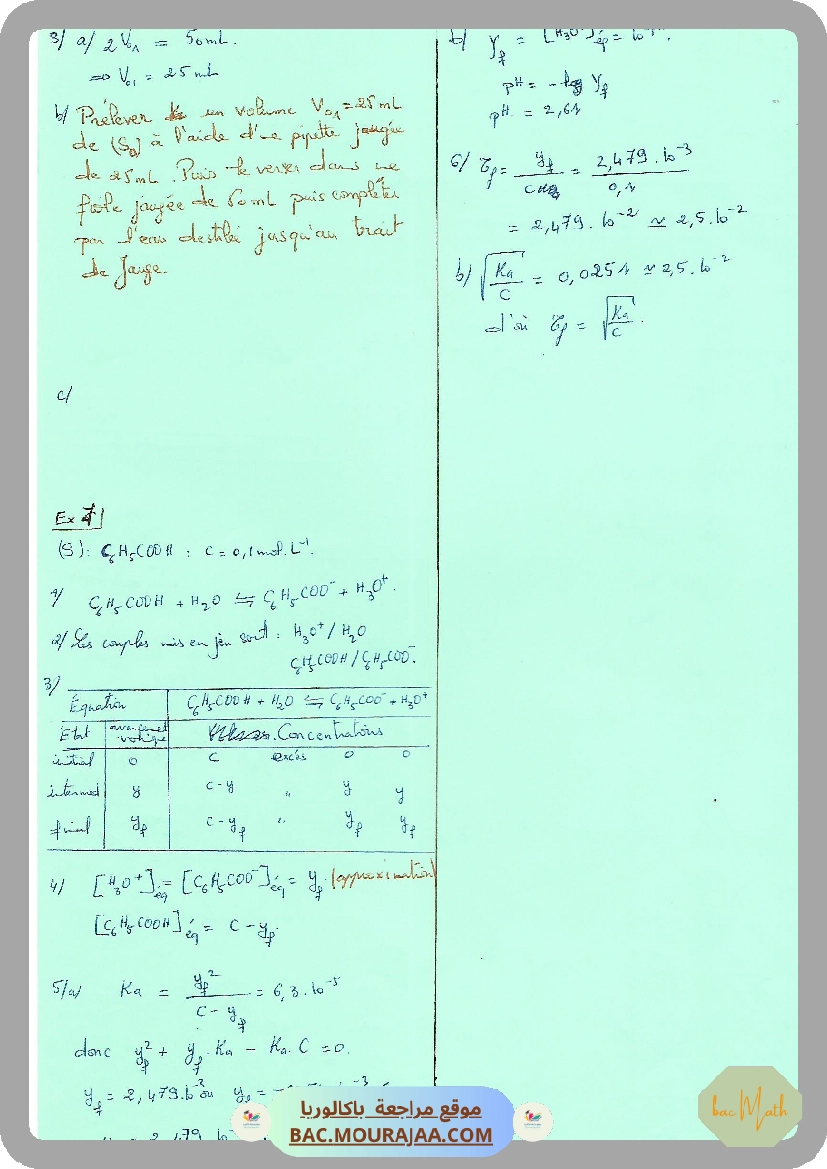 3/ a/ 2 V01 = 50 mL.
⇒ V01 = 25 mL
b/ Prélever un volume V01 = 25 mL
de (S0) à l'aide d'une pipette jaugée
de 25 mL. Puis le verser dans une
fiole jaugée de 50 mL puis compléter
par l'eau destilée jusqu'au trait
de Jauge.
c/
Ex 7
(S) : C6H5COOH : C = 0,1 mol.L⁻¹.
1/ C6H5COOH + H2O ⇌ C6H5COO⁻ + H3O⁺.
2/ Les couples mis en jeu sont : H3O⁺/H2O
C6H5COOH/C6H5COO⁻.
3/
Équation C6H5COOH + H2O ⇌ C6H5COO⁻ + H3O⁺
Etat avancement volumique Concentrations
initial 0 C excès 0 0
intermed y C-y " y y
final yf C-yf " yf yf
4/ [H3O⁺]éq = [C6H5COO⁻]éq = yf (approximation)
[C6H5COOH]éq = C - yf.
5/a/ Ka = yf²/(C - yf) = 6,3.10⁻⁵
donc yf² + yf.Ka - Ka.C = 0.
yf = 2,479.10⁻³ ou yf =
b/ yf = [H3O⁺]éq =
pH = -log yf
pH = 2,61
6/ τf = yf/C = 2,479.10⁻³/0,1
= 2,479.10⁻² ≃ 2,5.10⁻²
b/ √(Ka/C) = 0,0251 ≃ 2,5.10⁻²
d'où τf = √(Ka/C).
موقع مراجعة باكالوريا
BAC.MOURAJAA.COM
bac Math